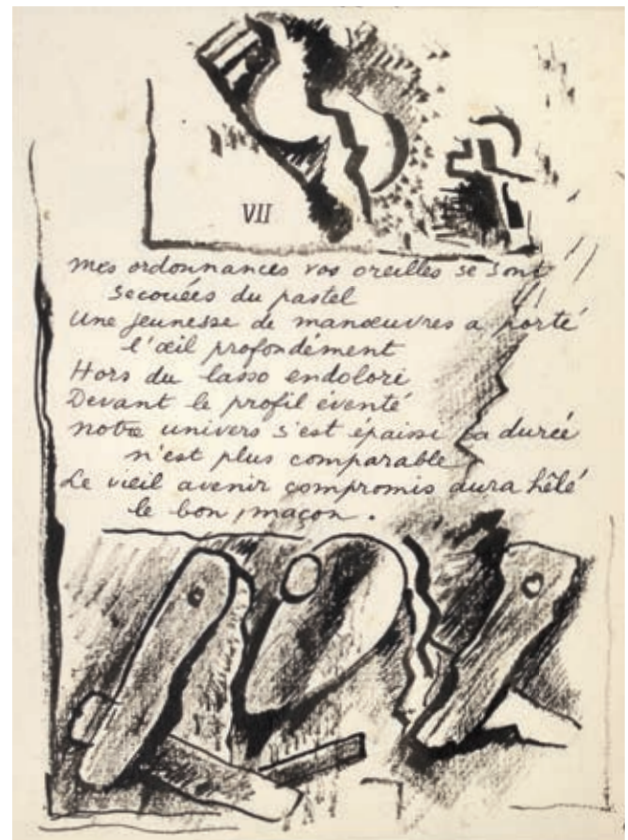 VII
Mes ordonnances vos oreilles se sont
secouées du pastel
Une jeunesse de manœuvres a porté
l'œil profondément
Hors du lasso endolori
Devant le profil éventé
Notre univers s'est épaissi la durée
n'est plus comparable
Le vieil avenir compromis aura hêlé
le bon maçon.